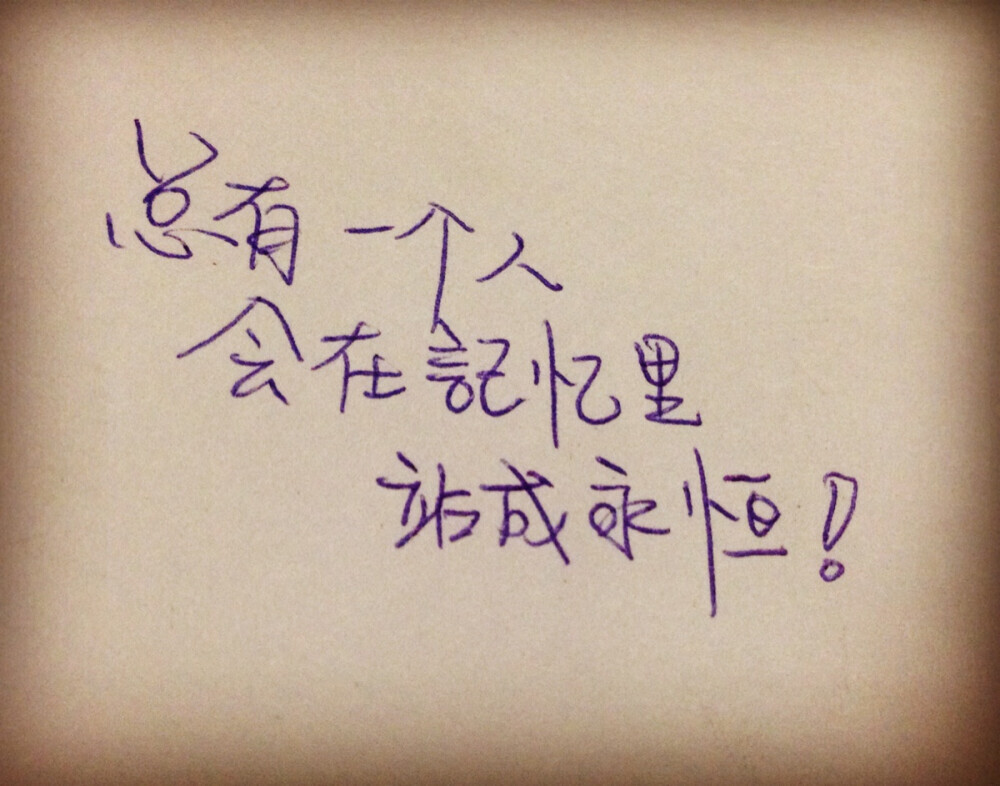 总有一个人
会在記忆里
站成永恒!